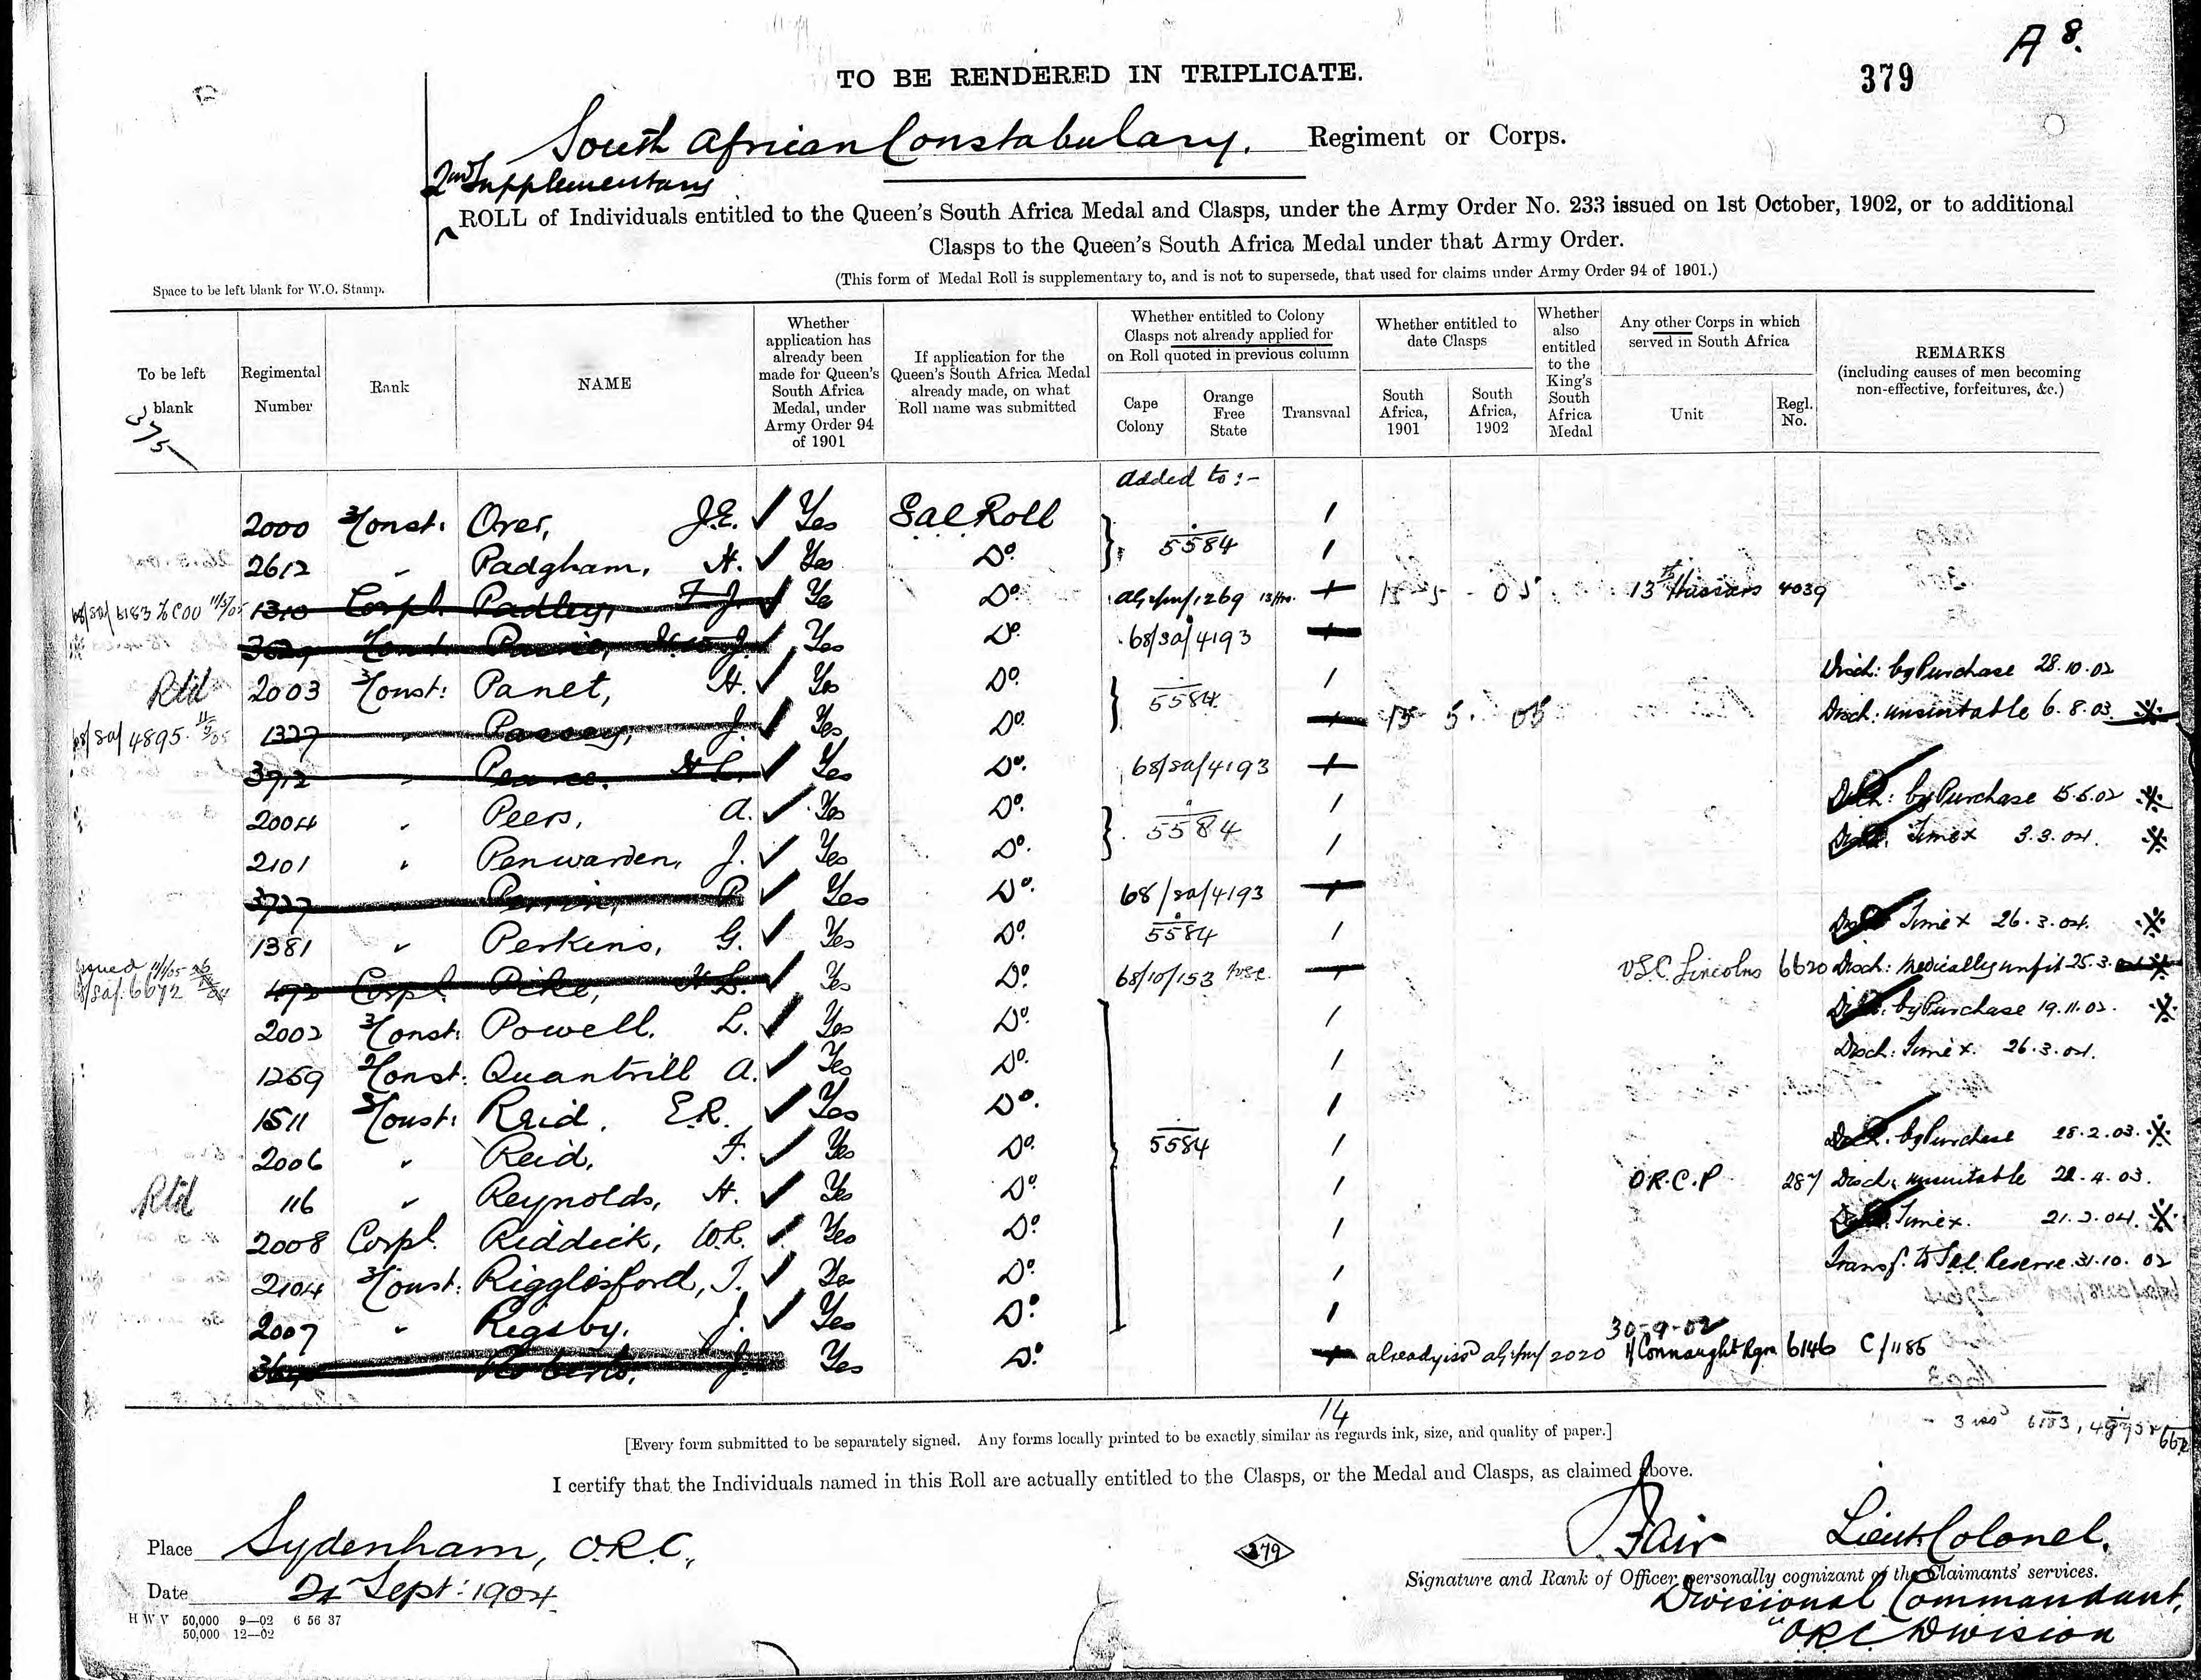 A 8.
379
TO BE RENDERED IN TRIPLICATE.
South African Constabulary. Regiment or Corps.
2nd Supplementary
ROLL of Individuals entitled to the Queen's South Africa Medal and Clasps, under the Army Order No. 233 issued on 1st October, 1902, or to additional
Clasps to the Queen's South Africa Medal under that Army Order.
(This form of Medal Roll is supplementary to, and is not to supersede, that used for claims under Army Order 94 of 1901.)
Space to be left blank for W.O. Stamp.
To be left blank
375
Regimental Number
Rank
NAME
Whether application has already been made for Queen's South Africa Medal, under Army Order 94 of 1901
If application for the Queen's South Africa Medal already made, on what Roll name was submitted
Whether entitled to Colony Clasps not already applied for on Roll quoted in previous column
Cape Colony
Orange Free State
Transvaal
Whether entitled to date Clasps
South Africa, 1901
South Africa, 1902
Whether also entitled to the King's South Africa Medal
Any other Corps in which served in South Africa
Unit
Regl. No.
REMARKS
(including causes of men becoming non-effective, forfeitures, &c.)
Added to :-
2000 3/Const: Orer, J.E. ✓ Yes Sac Roll 5584 /
2612 " Padgham, H. ✓ Yes Do. /
68/sa/6183 11/5/05 1310 Corpl. Padley, F.J. ✓ Yes Do. 1269 / 15 5 05 13th Hussars 4039
J. ✓ Yes Do. 68/sa/4193 /
Rtd 2003 3/Const: Panet, H. ✓ Yes Do. 5584 / Disch: by Purchase 28.10.02
68/sa/4895 1327 " J. ✓ Yes Do. / 15 5. 05 Disch: unsuitable 6.8.03 ※
3912 " Pearce. H.C. ✓ Yes Do. 68/sa/4193 /
2004 " Peers, A. ✓ Yes Do. 5584 / Disch: by Purchase 15.5.02 ※
2101 " Penwarden, J. ✓ Yes Do. / Disch: Timex 3.3.04. ※
3727 " Perrin, P. ✓ Yes Do. 68/sa/4193 /
1381 " Perkins, G. ✓ Yes Do. 5584 / Timex 26.3.04. ※
Issued 68/sa/6672 Corpl. Pike, H.L. ✓ Yes Do. 68/10/153 / VSC. Lincolns 6620 Disch: Medically unfit 25.3. ※
2002 3/Const: Powell. L. ✓ Yes Do. / by Purchase 19.11.02. ※
1259 2/Const: Quantrill A. ✓ Yes Do. / Disch: Timex. 26.3.04.
1511 3/Const: Reid, E.R. ✓ Yes Do. /
2006 " Reid, F. ✓ Yes Do. 5584 / by Purchase 28.2.03. ※
Rtd 116 " Reynolds, H. ✓ Yes Do. / O.R.C.P 287 Disch: unsuitable 22.4.03.
2008 Corpl. Riddick, W.C. ✓ Yes Do. / Timex. 21.2.04. ※
2104 3/Const: Rigglesford, T. ✓ Yes Do. / Transf. to Reserve 31.10.02
2007 " Rigsby, J. ✓ Yes Do. /
30-9-02
Roberts, J. Yes Do. / already issd 2020 1/Connaught Rgrs 6146 C/1186
14
3 issd 6183, 4895
[Every form submitted to be separately signed. Any forms locally printed to be exactly similar as regards ink, size, and quality of paper.]
I certify that the Individuals named in this Roll are actually entitled to the Clasps, or the Medal and Clasps, as claimed above.
Place Sydenham, O.R.C.,
Date 21 Sept: 1904.
379
Fair Lieut Colonel.
Signature and Rank of Officer personally cognizant of the Claimants' services.
Divisional Commandant,
"ORC Division
H W V 50,000 9—02 6 56 37
50,000 12—02